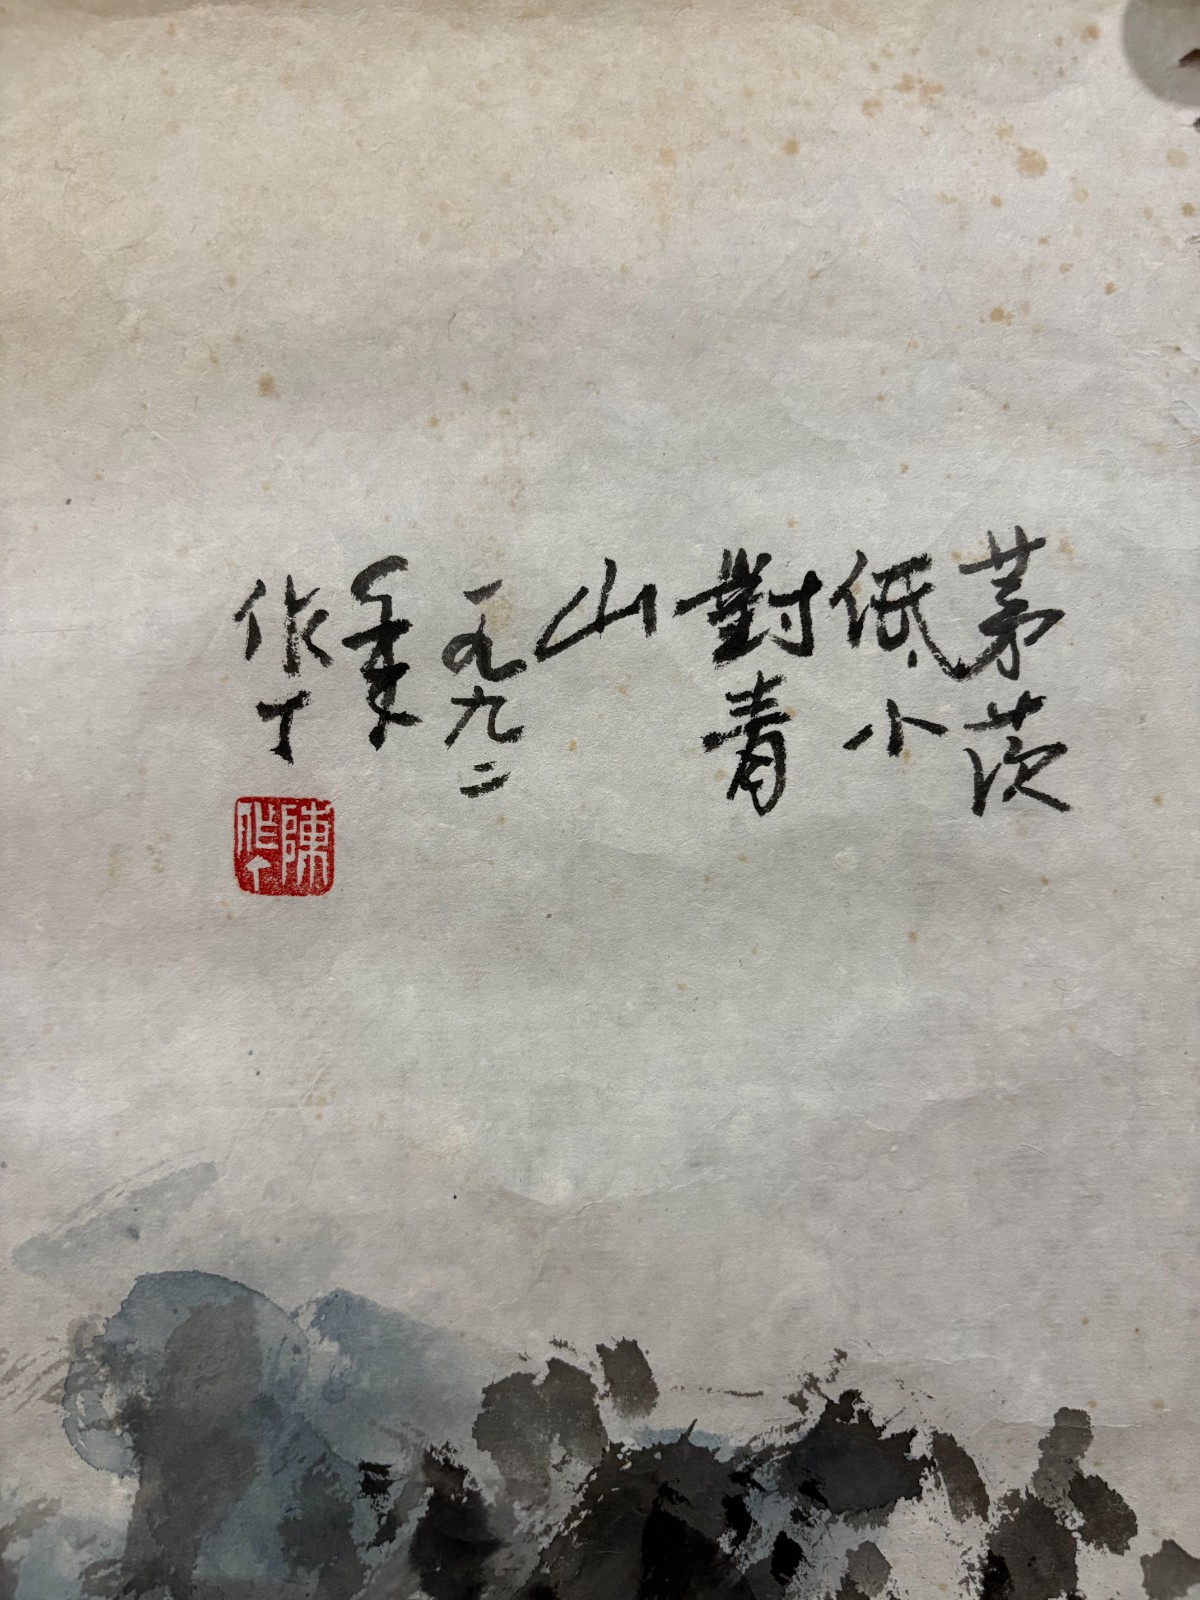 茅茨
低小
對青
山
一九九二
年
作丁
陳作丁